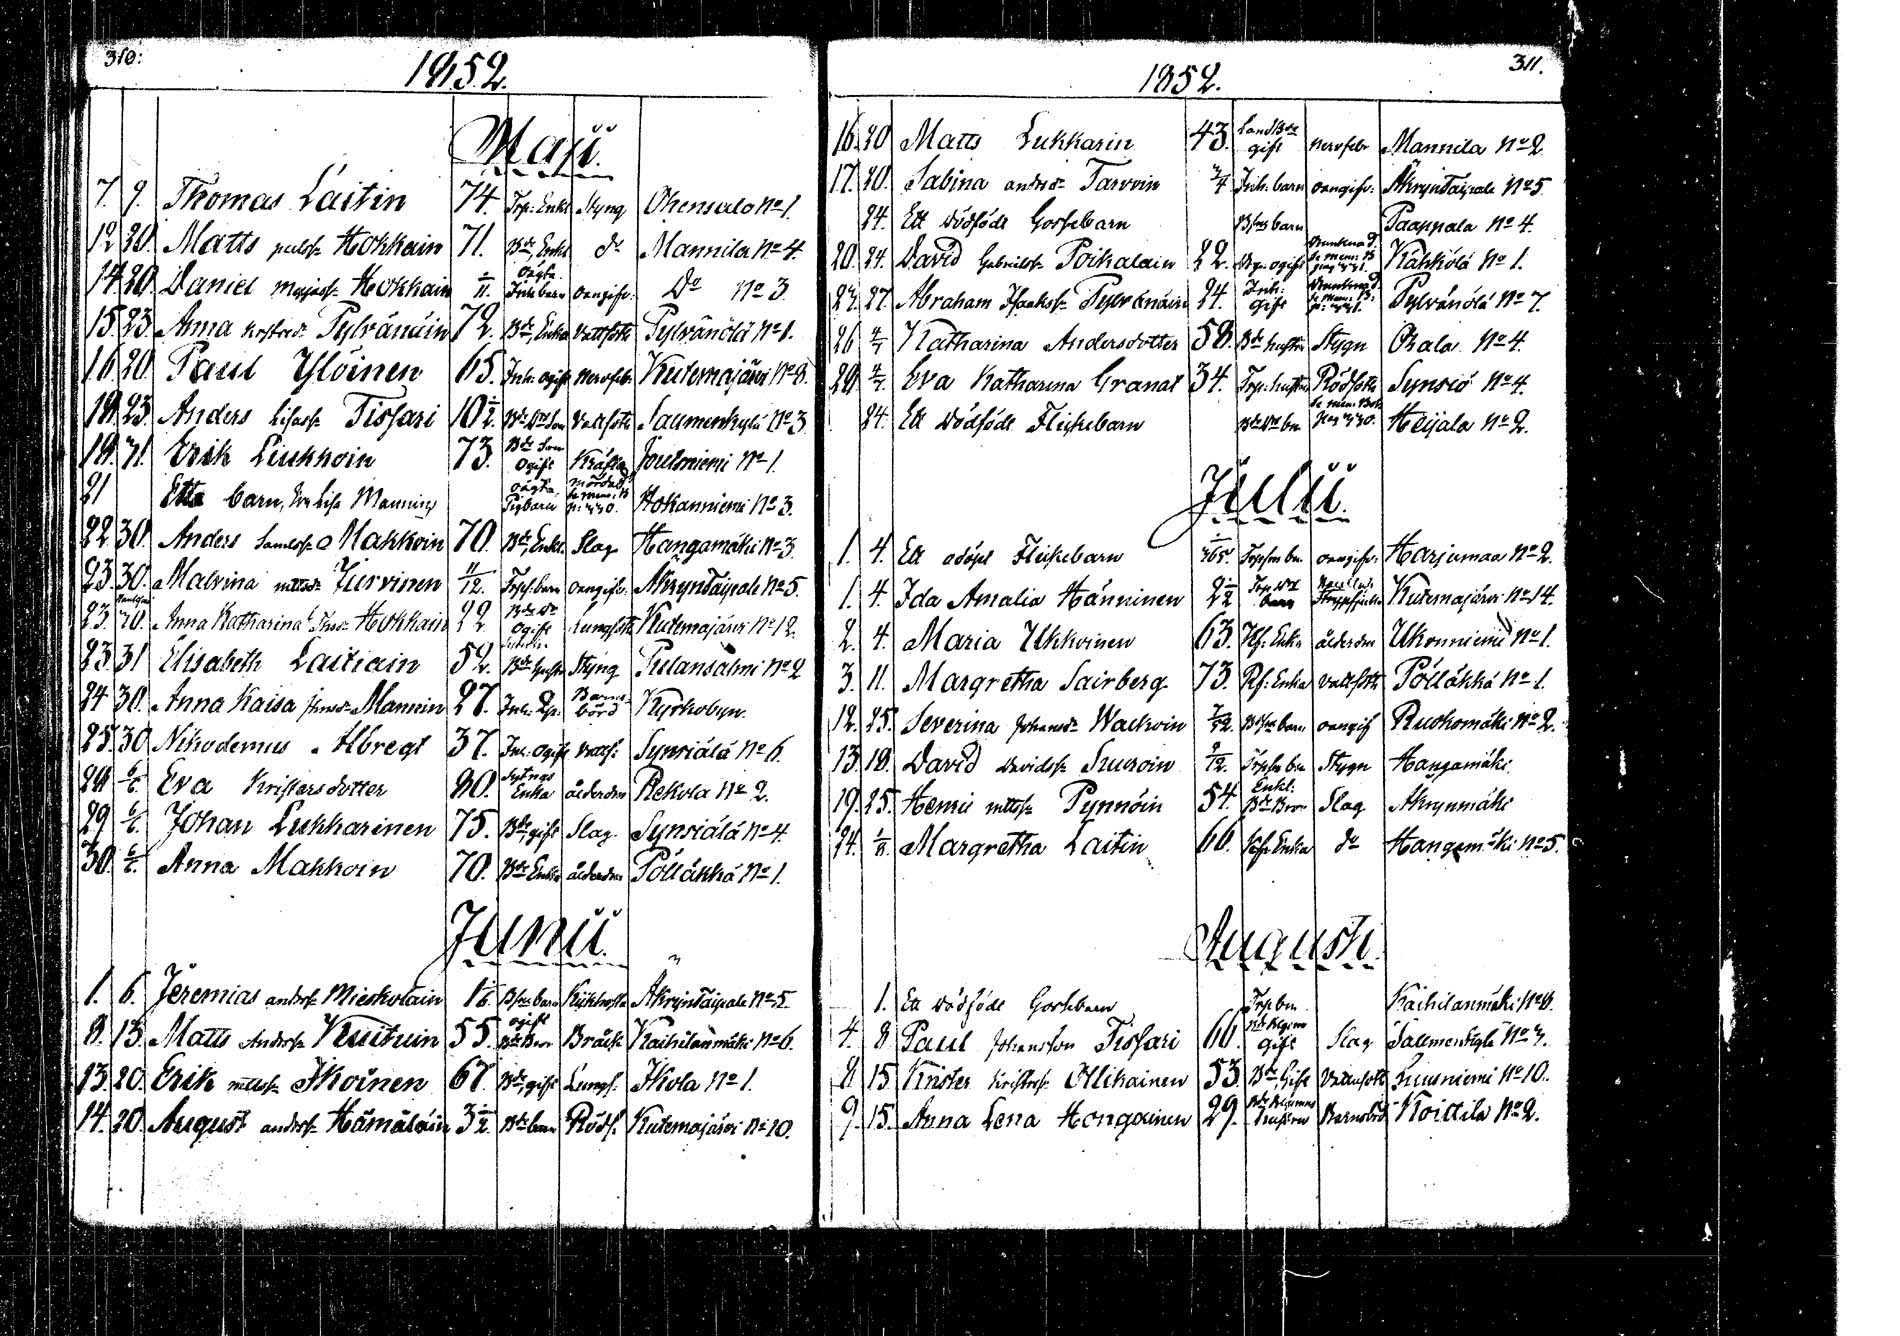 310:
1852.
Maji.
7. 9. Thomas Laitin 74. Trp: Enkl Styng Ohensalo No 1.
12 20. Matts paulss. Hokkain 71. Bde Enkl do Mannila No 4.
14. 20. Daniel Hokkain oägta Inh barn oangifv: Do No 3.
15. 23. Anna Pylvänäin 72. Bde, Enka Vattsoth Pylvänölä No 1.
16 20. Paul Ylöinen 65. Inh: ogift nervfebr Kutemajärvi No 8.
18. 23. Anders Tissari 10 1/2. Vattsoth Saumenkylä No 3
19. 31. Erik Liukkoin 73. Bde Son Ogift Kräfta Joutsniemi No 1.
21 barn, Hokanniemi No 3.
22. 30. Anders Samelss. Makkoin 70. Bde, Enkl. Slag Hangamäki No 3.
23. 30. Malvina mattsdr Jurvinen 11/12. Trpf: barn oangifv: Akryntaipale No 5.
23. 30. Anna Katharina Hokkain 22 Ogift Lungsoth Kutemajärvi No 12.
23. 31 Elisabeth Laitiain 52. Bde hustr Styng Pulansalmi No 2
24 30. Anna Kaisa Mannin 27. Barns-börd Kyrkobyn.
25. 30 Nikodemus Albregt 37. Inh: Ogift Vatts: Synsiälä No 6.
28 6/6. Eva Kristersdotter 80. Enka ålderdom Rekola No 2.
29 6/6. Johan Lukkarinen 75. Bde, gift Slag. Synsiälä No 4.
30. 6/6. Anna Makkoin 70. Bde Enka ålderdom Pölläkkä No 1.
Junii.
1. 6. Jeremias andrss. Mieskolain barn Kikhosta Akryntaipale No 5.
8. 13. Matts Andrss. Kuituin 55. ogift Bde Bror Bråck Kaihilanmäki No 6.
13. 20. Erik mattss. Ikoinen 67. Bde, gift Lungs. Ikola No 1.
14. 20. August andrss. Hämäläin 3 1/2. Bde barn Röds. Kutemajärvi No 10.
311.
1852.
16. 20 Matts Lukkarin 43. Landbde gift nervfebr Mannila No 2
17. 20. Sabina andrsdr Tarvoin Inh. barn oangifv: Akryntaipale No 5
24. Ett dödfödt Gossebarn barn Paappala No 4.
20. 24. David Gabrielss. Poikalain 22. ogift Drunknad. Kähkölä No 1.
23. 27. Abraham Isaakss. Pylvänäin 24. Inh: Gift Drunknad. Pylvänölä No 7.
26 4/7 Katharina Andersdotter 58. Bde hustru Stygn Ohala No 4.
29 4/7. Eva Katharina Granat 34. Trp. hustru Rödsoth Synsiö No 4.
24. Ett dödfödt Flickebarn Heijala No 2.
Julii.
1. 4. Ett odöpt Flickebarn 1/365. oangifv: Harjumaa No 2.
1. 4. Ida Amalia Hänninen 2 1/2 barn Kutemajärvi No 14.
2. 4. Maria Ukkoinen 63. Enka ålderdom Ukonniemi No 1.
3. 11. Margretha Sairberg 73. Enka vattsoth Pölläkkä No 1.
12. 25. Severina Johansdr Wackoin barn oangif Ruokomäki No 2.
13. 18. David Davidss. Suuroin Stygn Hangamäki
19. 25. Henric mattss. Pynnöin 54. Enkl. Bde Bror Slag Akrynmäki
24. 1/8. Margretha Laitin 66. Enka do Hangamäki No 5.
Augusti.
1. Ett dödfödt Gossebarn Kaihilanmäki No 6.
4. 8 Paul Johansson Tissari 66. gift Slag No 3.
8. 15. Krister Kristerss. Ollikainen 53. Bde, Gift Vattusoth Suusniemi No 10.
9. 15. Anna Lena Hongainen 29. hustru Barnsbörd Koittila No 2.